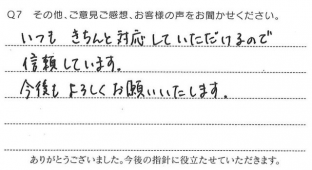 Q7 その他、ご意見ご感想、お客様の声をお聞かせください。
いつも きちんと対応していただけるので
信頼しています。
今後も よろしくお願いいたします。
ありがとうございました。今後の指針に役立たせていただきます。